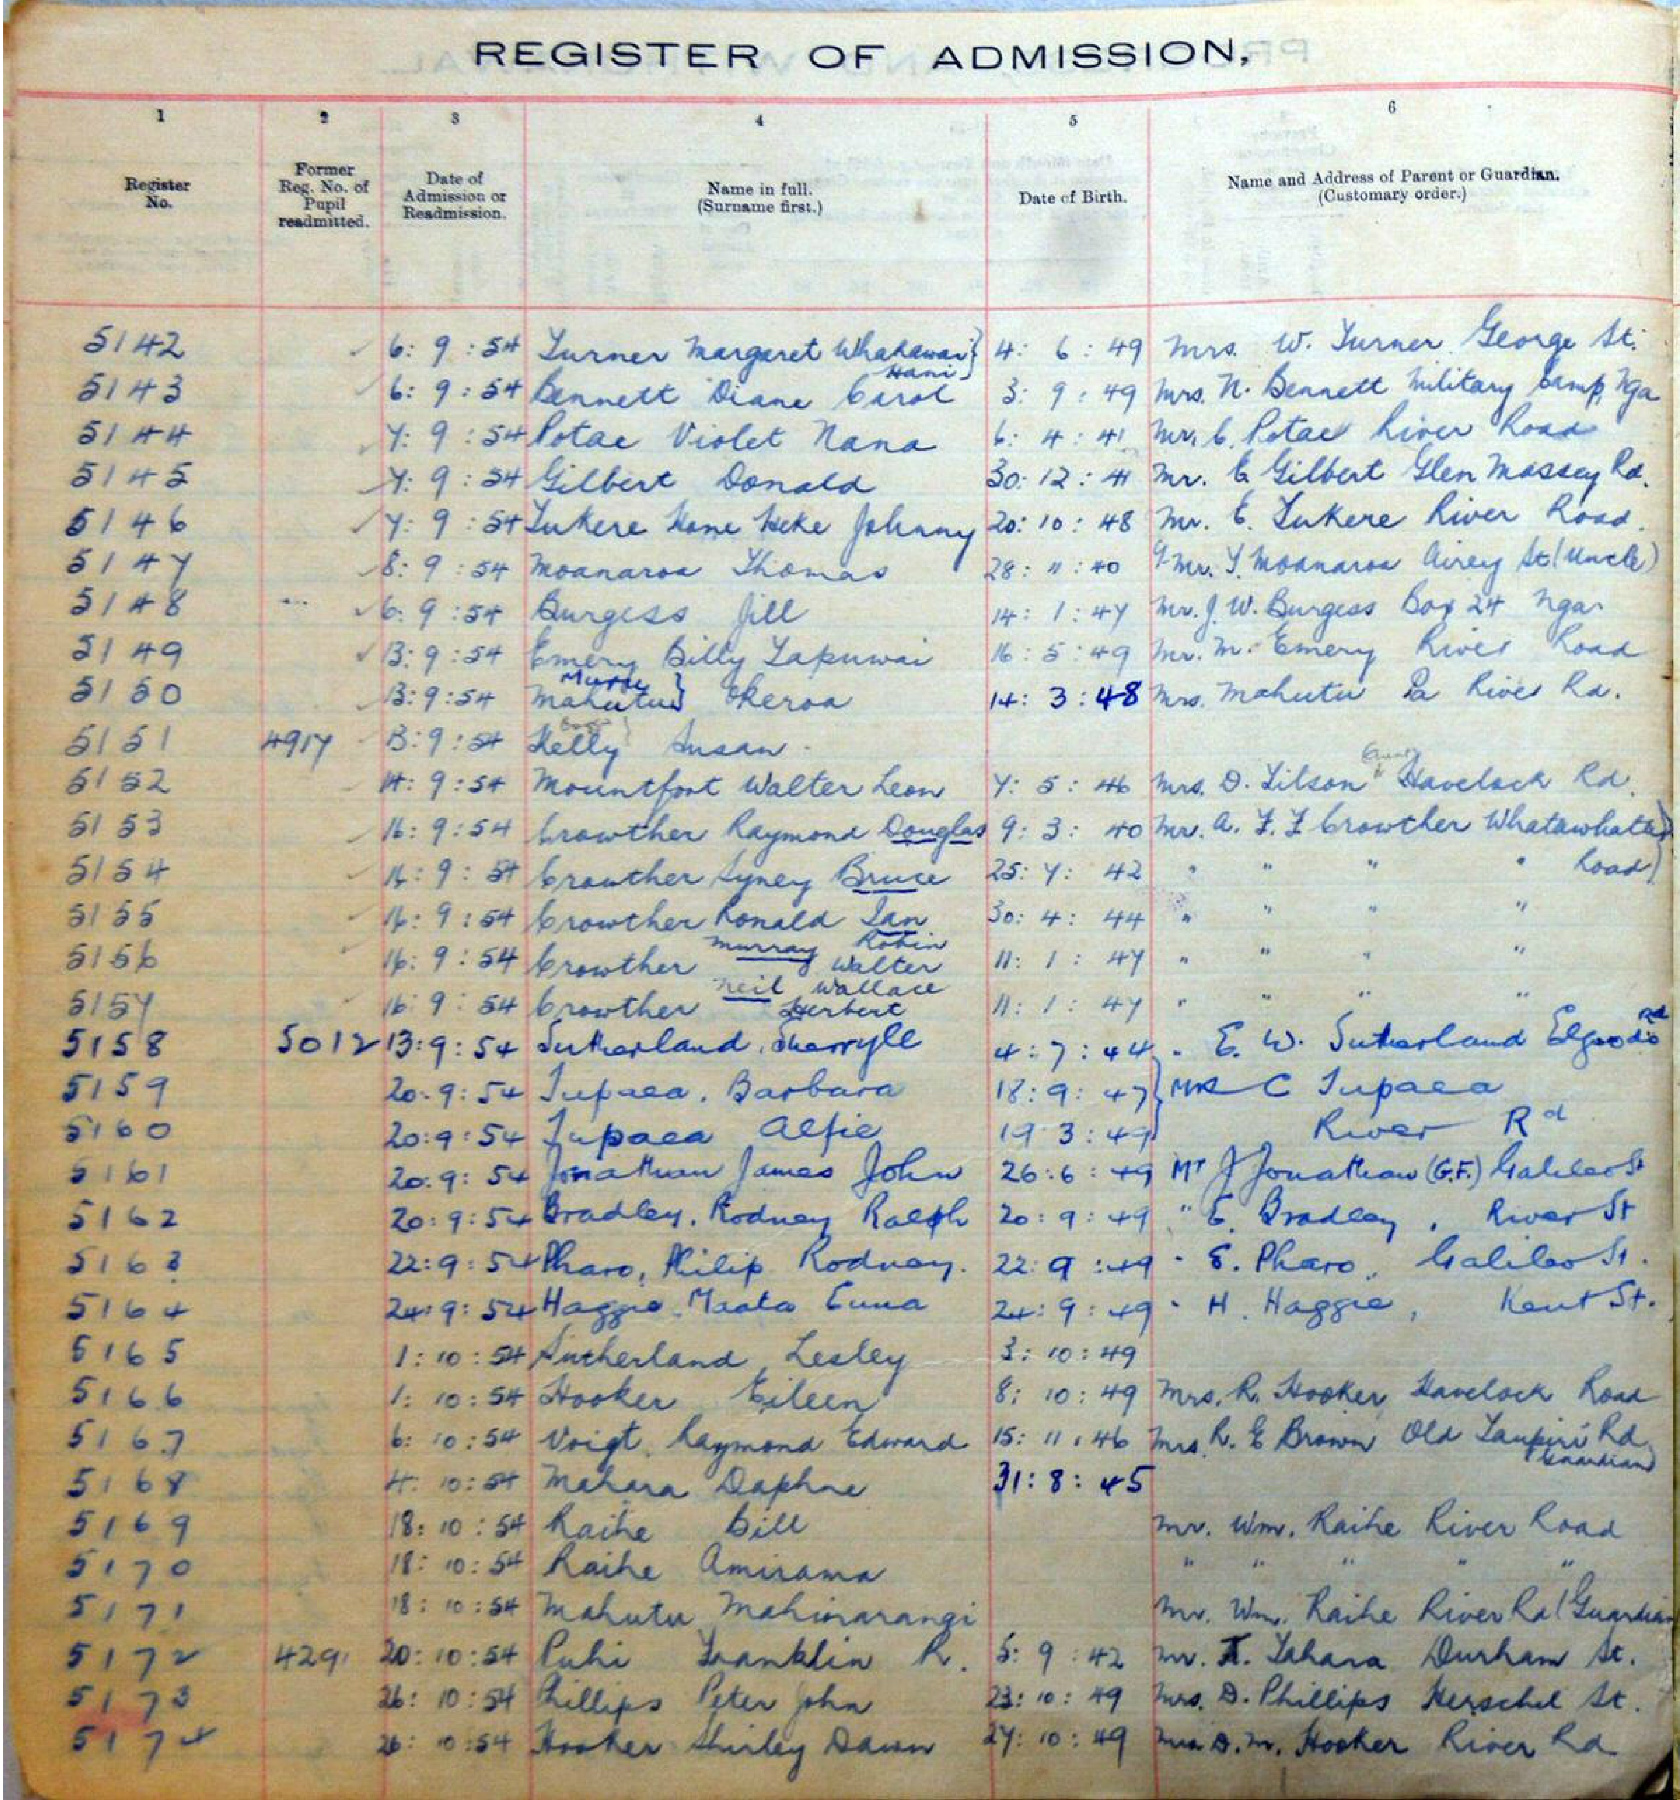 REGISTER OF ADMISSION,
1 2 3 4 5 6
Register No. Former Reg. No. of Pupil readmitted. Date of Admission or Readmission. Name in full. (Surname first.) Date of Birth. Name and Address of Parent or Guardian. (Customary order.)
5142 6: 9 : 54 Turner Margaret Whakawai Hani } 4: 6 : 49 Mrs. W. Turner George St.
5143 6: 9 : 54 Bennett Diane Carol 3: 9 : 49 Mrs. N. Bennett Military Camp, Nga
5144 7: 9 : 54 Potae Violet Nana 6: 4 : 41 Mr. C. Potae River Road
5145 7: 9 : 54 Gilbert Donald 30: 12 : 41 Mr. E Gilbert Glen Massey Rd.
5146 7: 9 : 54 Tukere Hone Heke Johnny 20: 10 : 48 Mr. E. Tukere River Road.
5147 8: 9 : 54 Moanaroa Thomas 28: 11 : 40 Mr. T. Moanaroa Airey St. (Uncle)
5148 6: 9 : 54 Burgess Jill 14: 1 : 47 Mr. J. W. Burgess Box 24 Nga
5149 13: 9 : 54 Emery Billy Tapuwai 16: 5 : 49 Mr. M. Emery River Road
5150 13: 9 : 54 Mahutu } Ekeroa 14: 3 : 48 Mrs. Mahutu Pa River Rd.
5151 4917 13: 9 : 54 Kelly Susan
5152 14: 9 : 54 Mountfort Walter Leon 7: 5 : 46 Mrs. D. Tilson Havelock Rd.
5153 16: 9 : 54 Crowther Raymond Douglas 9: 3 : 40 Mr. A. F. F Crowther Whatawhata }
5154 16: 9 : 54 Crowther Syney Bruce 25: 7: 42 " " " " Road }
5155 16: 9 : 54 Crowther Ronald Ian 30: 4: 44 " " " "
5156 16: 9 : 54 Crowther Murray Robin Walter 11: 1 : 47 " " " "
5157 16: 9 : 54 Crowther Neil Wallace Herbert 11: 1 : 47 " " " "
5158 5012 13: 9 : 54 Sutherland, Sharryll 4 : 7 : 44 " E. W. Sutherland Elgoods Rd
5159 20: 9 : 54 Tupaea, Barbara 18: 9: 47 } Mrs C Tupaea
5160 20: 9 : 54 Tupaea Alfie 19 3 : 49 } River Rd
5161 20. 9: 54 Jonathan James John 26: 6 : 49 Mr J Jonathan (G.F.) Galileo St
5162 20: 9 : 54 Bradley, Rodney Ralph 20: 9 : 49 " E. Bradley, River St
5163 22: 9 : 54 Pharo, Philip Rodney. 22: 9 : 49 " E. Pharo, Galileo St.
5164 24: 9 : 54 Haggie Maata Euna 24: 9 : 49 " H. Haggie, Kent St.
5165 1: 10 : 54 Sutherland, Lesley 3: 10 : 49
5166 1: 10 : 54 Hooker Eileen 8: 10 : 49 Mrs. R. Hooker, Havelock Road
5167 6: 10 : 54 Voigt, Raymond Edward 15: 11 : 46 Mrs R. E Brown Old Taupiri Rd (Guardian)
5168 4: 10 : 54 Mahara Daphne 31: 8 : 45
5169 18: 10 : 54 Raihe Bill Mr. Wm. Raihe River Road
5170 18: 10 : 54 Raihe Amirama " " " " "
5171 18: 10 : 54 Mahutu Mahinarangi Mr. Wm. Raihe River Rd (Guardian
5172 4291 20: 10 : 54 Puhi Franklin R. 5: 9 : 42 Mr. T. Tahara Durham St.
5173 26: 10 : 54 Phillips Peter John 23: 10 : 49 Mrs. D. Phillips Herschel St.
5174 26: 10 : 54 Hooker Shirley Dawn 27: 10 : 49 Mrs D. M. Hooker River Rd